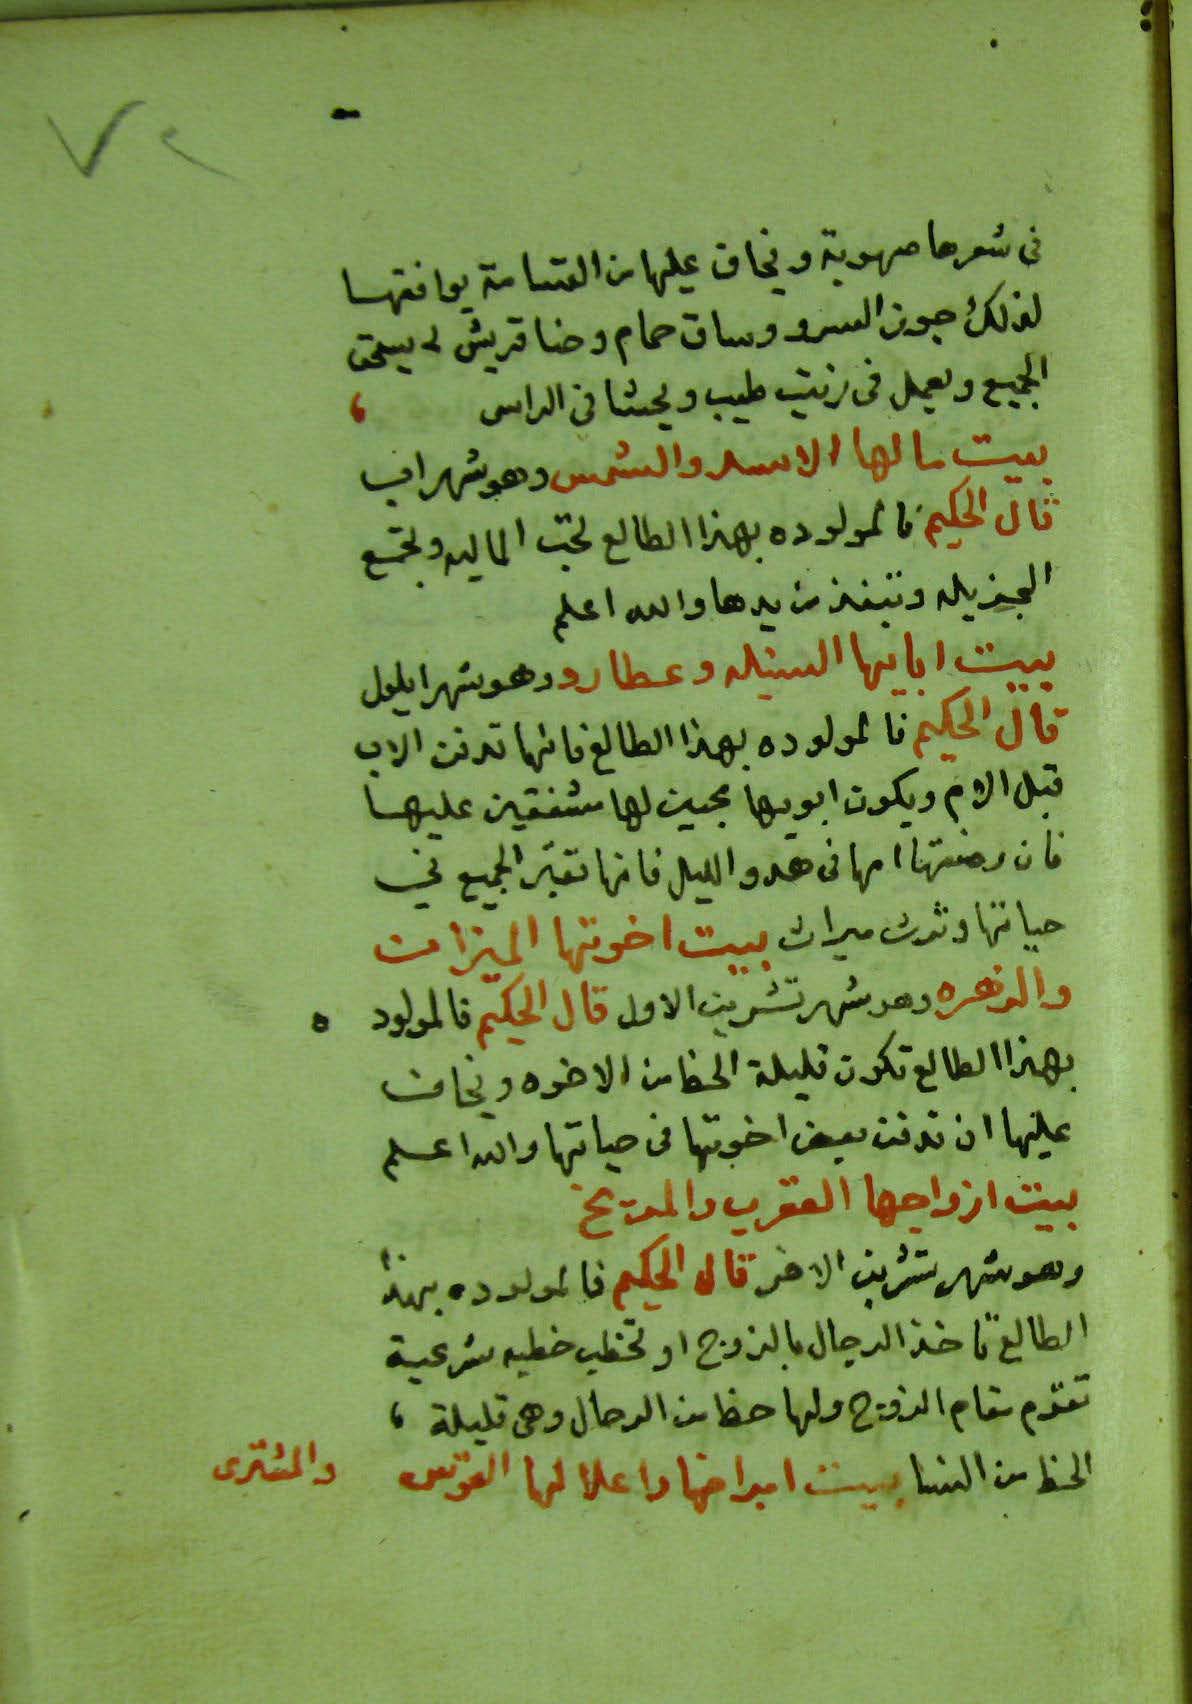 ٧٢
فى شعرها صهوبة ويخاف عليها من القشامة يوافقها
لذلك جوز السرو وساق حمام وحنا قريش يسحق
الجميع ويعمل فى زيت طيب ويحشا فى الراس ،
بيت مالها الاسد والشمس وهو شهر اب
قال الحكيم فالمولوده بهذا الطالع تحب الماليه وتجمع
الجزيله وتنفذ من يدها والله اعلم
بيت ابايها السنبله وعطارد وهو شهر ايلول
قال الحكيم فالمولوده بهذا الطالع فانها تدفن الاب
قبل الام ويكون ابويها محبين لها مشفقين عليها
فان وضعتها امها فى هدو الليل فانها تقبر الجميع فى
حياتها وترث ميراث بيت اخوتها الميزان
والزهره وهو شهر تشرين الاول قال الحكيم فالمولود ه
بهذا الطالع تكون قليلة الحظ من الاخوه ويخاف
عليها ان تدفن بعض اخوتها فى حياتها والله اعلم
بيت ازواجها العقرب والمريخ
وهو شهر تشرين الاخر قال الحكيم فالمولوده بهذا
الطالع تاخذ الرجال بالزوج او تخطب خطبه شرعية
تقوم مقام الزوج ولها حظ من الرجال وهى قليلة ،
الحظ من النسا بيت امراضها واعلالها القوس والمشترى